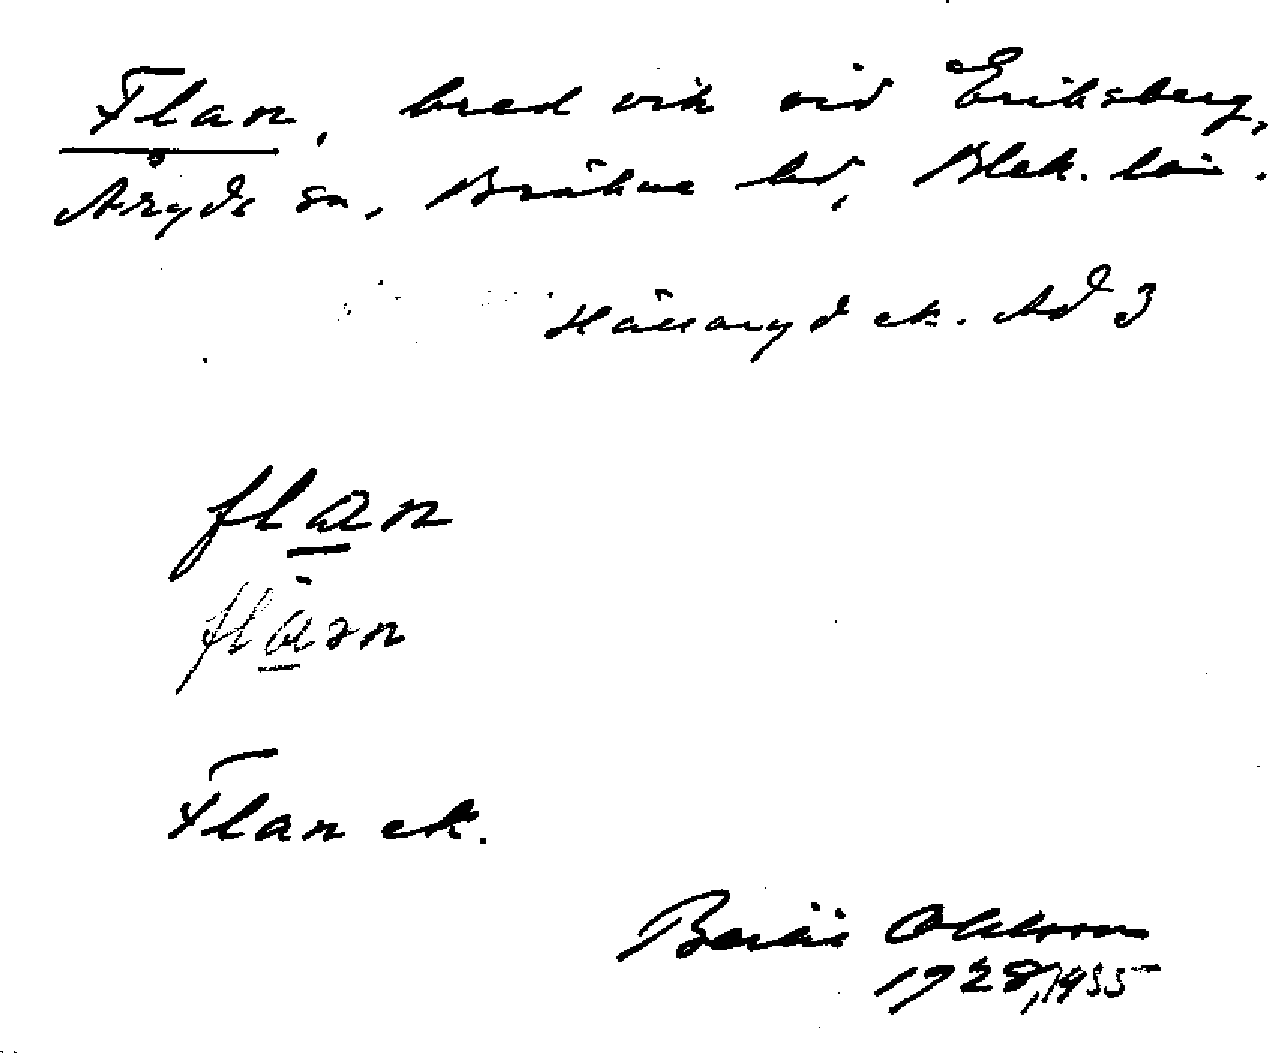 Flan, bred vik vid Eriksberg,
Åryds sn, Bräkne hd, Blek. län.
Hällaryd ek. Ad 3
flan
flarn
Flan ek.
Bertil Ohlsson
1928, 1935